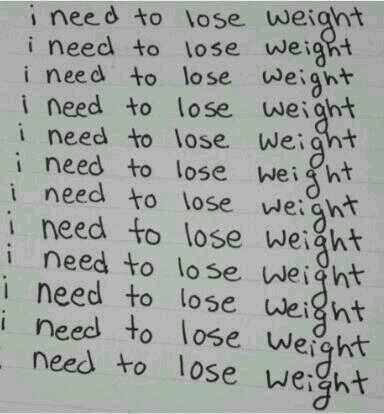 i need to lose weight
i need to lose weight
i need to lose weight
i need to lose weight
i need to lose weight
i need to lose weight
i need to lose weight
i need to lose weight
i need to lose weight
i need to lose weight
i need to lose weight
need to lose weight